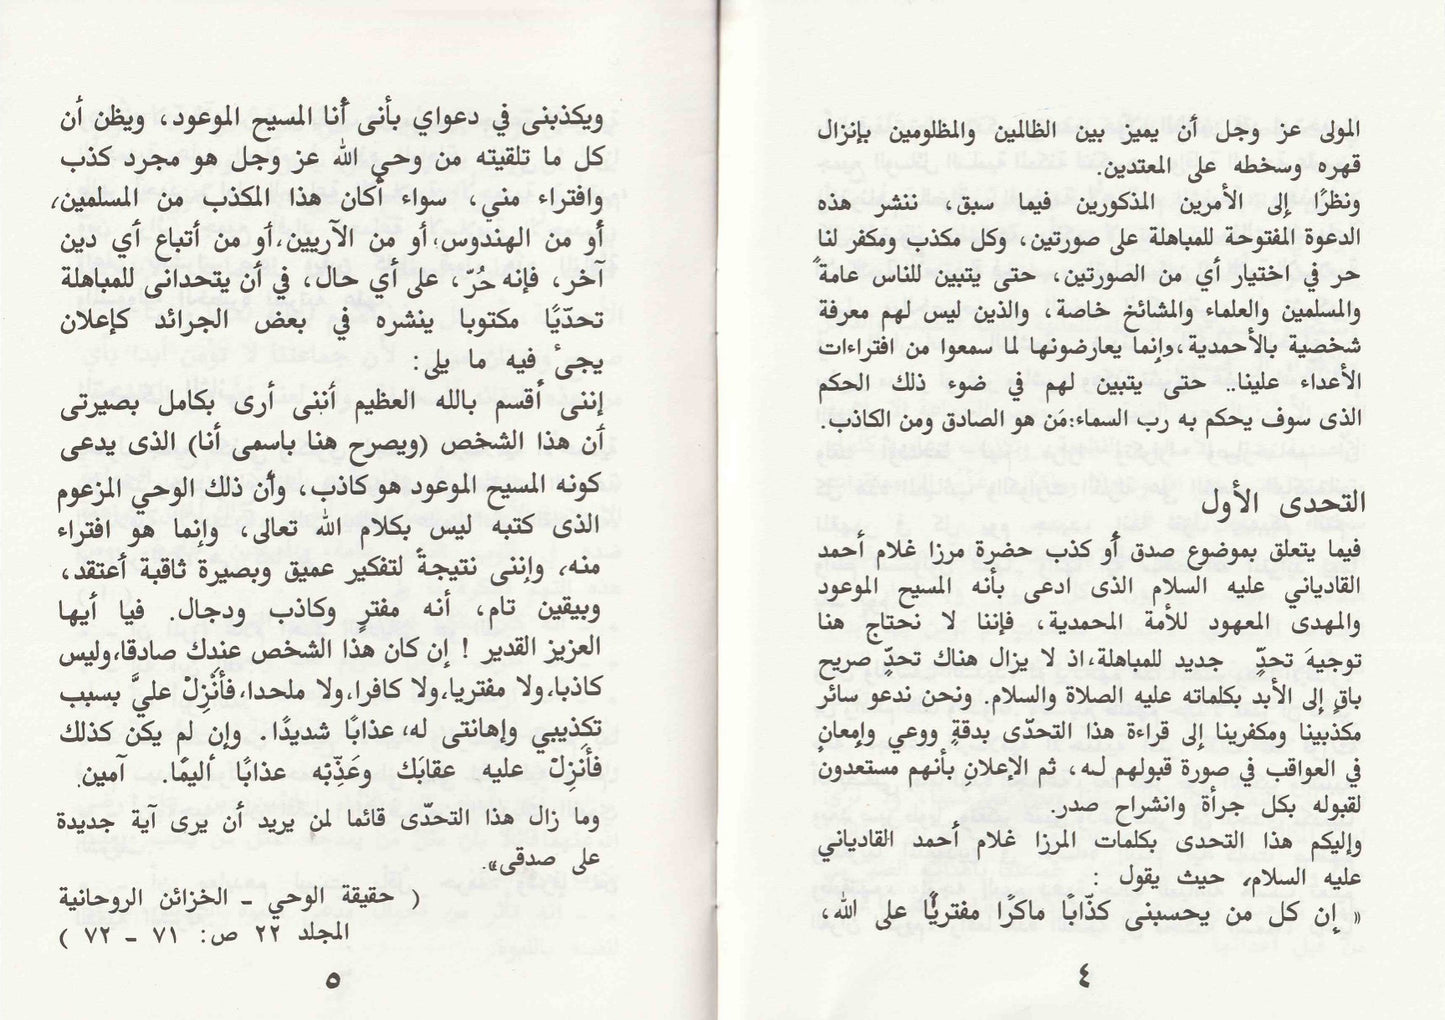 المولى عز وجل أن يميز بين الظالمين والمظلومين بإنزال
قهره وسخطه على المعتدين.
ونظرًا إلى الأمرين المذكورين فيما سبق، ننشر هذه
الدعوة المفتوحة للمباهلة على صورتين، وكل مكذب ومكفر لنا
حر في اختيار أي من الصورتين، حتى يتبين للناس عامةً
والمسلمين والعلماء والمشائخ خاصة، والذين ليس لهم معرفة
شخصية بالأحمدية، وإنما يعارضونها لما سمعوا من افتراءات
الأعداء علينا.. حتى يتبين لهم في ضوء ذلك الحكم
الذى سوف يحكم به رب السماء: مَن هو الصادق ومن الكاذب.
التحدى الأول
فيما يتعلق بموضوع صدق أو كذب حضرة مرزا غلام أحمد
القادياني عليه السلام الذى ادعى بأنه المسيح الموعود
والمهدى المعهود للأمة المحمدية، فإننا لا نحتاج هنا
توجيهَ تحدٍّ جديد للمباهلة، اذ لا يزال هناك تحدٍّ صريح
باقٍ إلى الأبد بكلماته عليه الصلاة والسلام. ونحن ندعو سائر
مكذبينا ومكفرينا إلى قراءة هذا التحدّى بدقةٍ ووعي وإمعانٍ
في العواقب في صورة قبولهم لـه، ثم الإعلانِ بأنهم مستعدون
لقبوله بكل جرأة وانشراح صدر.
وإليكم هذا التحدى بكلمات المرزا غلام أحمد القادياني
عليه السلام، حيث يقول :
« إن كل من يحسبنى كذّابًا ماكرًا مفتريًا على الله،
٤
ويكذبنى في دعواي بأنى أنا المسيح الموعود، ويظن أن
كل ما تلقيته من وحي الله عز وجل هو مجرد كذب
وافتراء مني، سواء أكان هذا المكذب من المسلمين،
أو من الهندوس، أو من الآريين، أو من أتباع أي دين
آخر، فإنه حُرّ، على أي حال، في أن يتحدانى للمباهلة
تحدّيًا مكتوبا ينشره في بعض الجرائد كإعلان
يجىٔ فيه ما يلى:
إننى أقسم بالله العظيم أننى أرى بكامل بصيرتى
أن هذا الشخص (ويصرح هنا باسمى أنا) الذى يدعى
كونه المسيح الموعود هو كاذب، وأن ذلك الوحي المزعوم
الذى كتبه ليس بكلام الله تعالى، وإنما هو افتراء
منه، وإننى نتيجةً لتفكير عميق وبصيرة ثاقبة أعتقد،
وبيقين تام، أنه مفترٍ وكاذب ودجال. فيا أيها
العزيز القدير ! إن كان هذا الشخص عندك صادقا، وليس
كاذبا، ولا مفتريا، ولا كافرا، ولا ملحدا، فأَنْزِلْ عليَّ بسبب
تكذيبي وإهانتى له، عذابًا شديدًا. وإن لم يكن كذلك
فأَنزِلْ عليه عقابَك وعَذِّبْه عذابًا أليمًا. آمين.
وما زال هذا التحدّى قائما لمن يريد أن يرى آية جديدة
على صدقى».
( حقيقة الوحي ـ الخزائن الروحانية
المجلد ٢٢ ص: ٧١ ـ ٧٢ )
٥